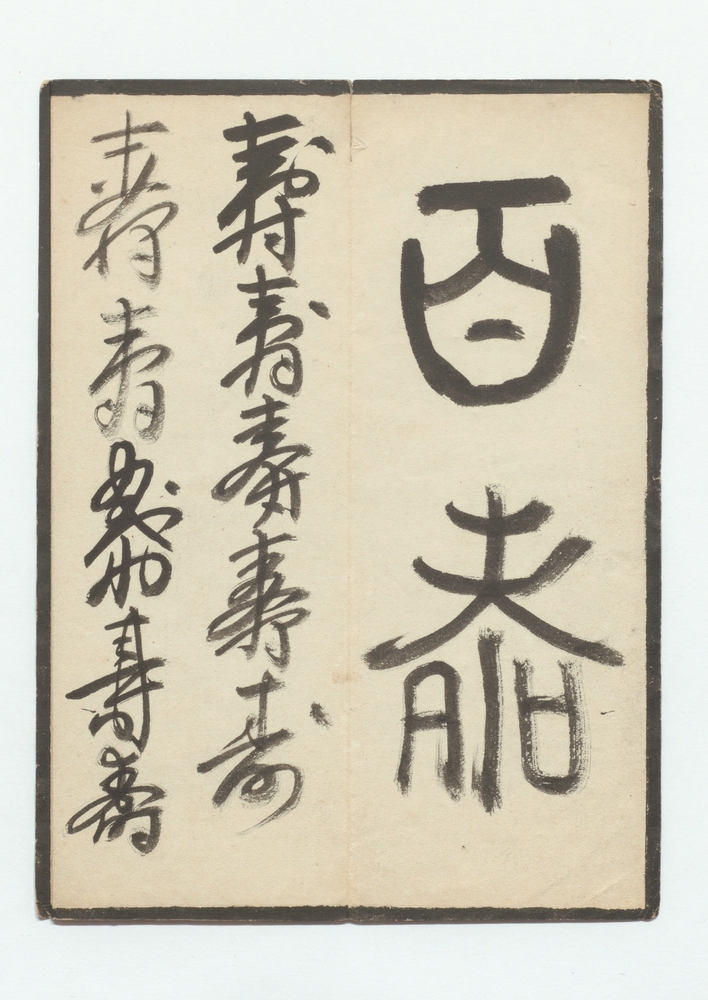 百壽
壽壽壽壽壽
壽壽壽壽壽